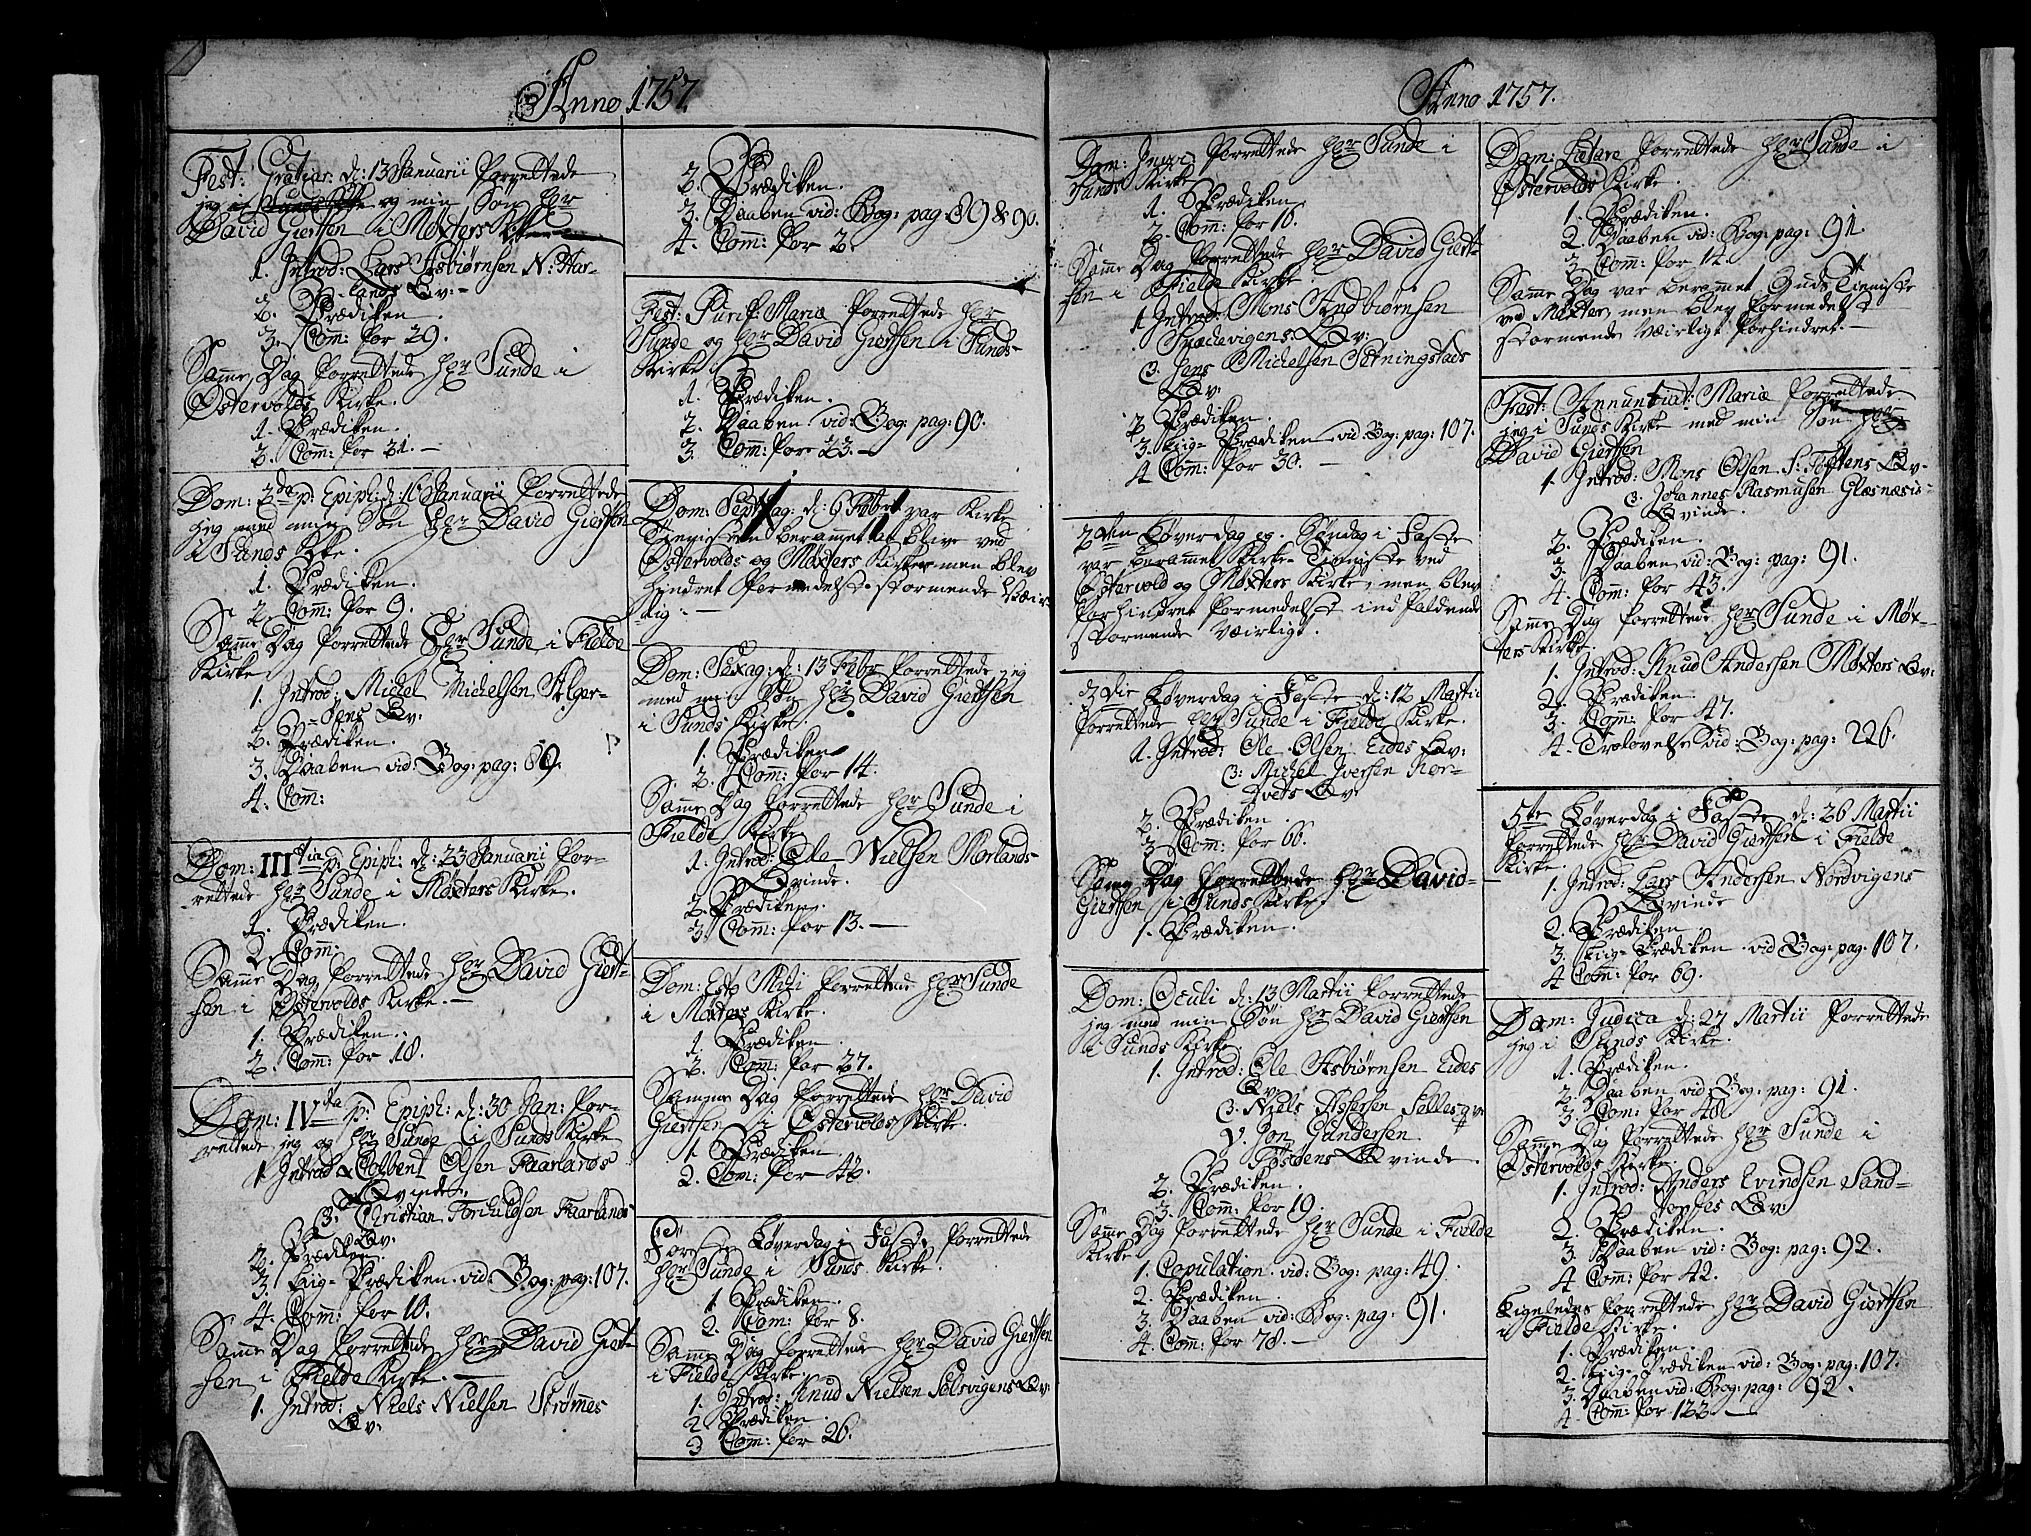 Anno 1757.
Fest: Gratiar: d: 13 Januarii forrettede
jeg og min Søn Hr
David Giertsen i Møxters Kirke
1. Introd: Lars Asbiørnsen N: Har-
lands Qv:
2. Prædiken.
3. Com̄: for 29.
Sam̄e Dag forrettede Hr Sunde i
Østervolds Kirke.
1. Prædiken.
2. Com̄: for 21.
Dom: 2da p: Epiph: d: 16 Januarii forrettede
jeg med min Søn Hr David Giertsen
i Sunds Kirke.
1. Prædiken.
2. Com̄: for 9.
Sam̄e Dag forrettede Hr Sunde i Fielde
Kirke
1. Introd: Michel Michelsen Alger-
Qv:
2. Prædiken.
3. Daaben vid: Bog: pag: 89.
4. Com̄:
Dom: IIItia p: Epiph: d: 23 Januarii for-
rettede Hr Sunde i Møxters Kirke.
1. Prædiken.
2. Com̄:
Sam̄e Dag forrettede Hr David Giert-
sen i Østervolds Kirke.
1. Prædiken.
2. Com̄: for 18.
Dom: IVta p: Epiph: d: 30 Jan: for-
rettede jeg og Hr Sunde i Sunds Kirke
1. Introd: Colbent Olsen Faarlands
Qvinde.
2. Christian Torchildsen Faarlands
Qv:
2. Prædiken.
3. Liig-Prædiken vid: Bog: pag: 107.
4. Com̄: for 10.
Sam̄e Dag forrettede Hr David Giert-
sen i Fielde Kirke.
1. Introd: Niels Nielsen Strømes
Qv.
2. Prædiken.
3. Daaben vid: Bog: pag: 89 & 90.
4. Com̄: for 2.
Fest: Purif: Mariæ forrettede Hr
Sunde og Hr David Giertsen i Sunds
Kirke
1. Prædiken.
2. Daaben vid: Bog: pag: 90.
3. Com̄: for 23.
Dom: Septuag: d: 6 Febr var Kirke
Tienisten berammet at blive ved
Østervolds og Møxters Kirker men blev
hindret formedelst stormende Væir-
lig.
Dom: Sexag: d: 13 Febr forrettede jeg
med min Søn Hr David Giertsen
i Sunds Kirke.
1. Prædiken
2. Com̄: for 14.
Sam̄e Dag forrettede Hr Sunde i
Fielde Kirke
1. Introd: Ole Nielsen Morlands
Qvinde.
2. Prædiken.
3. Com̄: for 13.
Dom: Esto Mihi forrettede Hr Sunde
i Møxters Kirke.
1. Prædiken.
2. Com̄: for 27.
Samme Dag forrettede Hr David
Giertsen i Østervolds Kirke.
1. Prædiken.
2. Com: for 48.
Første Løverdag i Faste forrettede
Hr Sunde i Sunds Kirke.
1. Prædiken.
2. Com: for 8.
Sam̄e Dag forrettede Hr David Giertsen
i Fielde Kirke.
1. Introd: Knud Nielsen Solsvigens Qv:
2. Prædiken.
3. Com̄: for 26.
Anno 1757.
Dom: Invoc: forrettede Hr Sunde i
Sunds Kirke
1. Prædiken
2. Com: for 10.
Sam̄e Dag forrettede Hr David Giert-
sen i Fielde Kirke.
1. Introd: Mons Andbiørnsen
Qv:
Jens Michelsen Setningstads
Qv:
2. Prædiken.
3. Liig-Prædiken vid: Bog: pag: 107.
4. Com: for 30.
2den Løverdag og Søndag i Faste
var berammet Kirke-Tieniste ved
Østervold og Møxters Kirke, men blev
forhindret formedelst indfaldende
stormende Væirligt.
3die Løverdag i Faste d: 12 Martii
forrettede Hr Sunde i Fielde Kirke.
1. Introd: Ole Olsen Eides Qv:
Michel Iversen Kor-
Qv:
2. Prædiken.
3. Com̄: for 66.
Sam̄e Dag forrettede Hr David
Giertsen i Sunds Kirke.
1. Prædiken.
Dom: Oculi d: 13 Martii forrettede
jeg med min Søn Hr David Giertsen
i Sunds Kirke.
1. Introd: Ole Asbiørnsen Eides
Qv:
Niels Assersen Selles qv
Jon Gundersen
Qvinde.
2. Prædiken.
3. Com̄: for 19.
Sam̄e Dag forrettede Hr Sunde i Fielde
Kirke
1. Copulation vid: Bog: pag: 49.
2. Prædiken.
3. Daaben vid: Bog: pag: 91.
4. Com̄: for 78.
Dom: Lætare forrettede Hr Sunde i
Østervolds Kirke.
1. Prædiken.
2. Daaben vid: Bog: pag: 91.
3. Com̄: for 14.
Sam̄e Dag var berammet Guds Tieniste
ved Møxter, men blev formedelst
stormende Væirligt forhindret.
Fest: Annuntiat: Mariæ forrettede
jeg i Sunds Kirke med min Søn Hr
David Giertsen
1. Introd: Mons Olsen S: Toftens Qv.
Johannes Rasmusen Glesnæsis
Qvinde.
2. Prædiken.
3. Daaben vid: Bog: pag: 91.
4. Com̄: for 43.
Sam̄e Dag forrettede Hr Sunde i Møx-
ters Kirke.
1. Introd: Knud Andersen Møxters Qv:
2. Prædiken
3. Com̄: for 47.
4. Trolovelse vid: Bog: pag: 226.
5te Løverdag i Faste d: 26 Martii
forrettede Hr David Giertsen i Fielde
Kirke.
1. Introd: Lars Andersen Nordvigens
Qvinde
2. Prædiken
3. Liig-Prædiken vid Bog: pag: 107.
4. Com̄: for 69.
Dom: Judica d: 27 Martii forrettede
jeg i Sunds Kirke.
1. Prædiken.
2. Daaben vid: Bog: pag: 91.
3. Com̄: for 48.
Sam̄e Dag forrettede Hr Sunde i
Østervolds Kirke
1. Introd: Anders Evindsen Sand-
Qv:
2. Prædiken.
3. Daaben vid: Bog: pag: 92.
4. Com̄: for 42.
Ligeledes forrettede Hr David Giertsen
i Fielde Kirke.
1. Prædiken.
2. Liig-Prædiken vid: Bog: pag: 107.
3. Daaben vid: Bog: pag: 92.
4. Com̄: for 122.